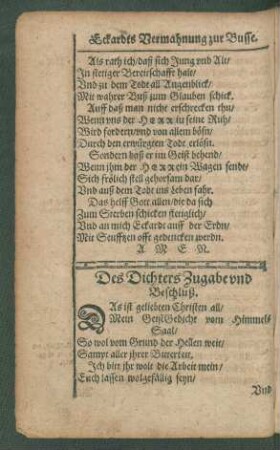 Eckardts Vermahnung zur Busse.
Als rath ich/daß sich Jung vnd Alt/
In stetiger Bereitschafft halt/
Vnd zu dem Todt all Augenblick/
Mit wahrer Buß zum Glauben schick.
Auff daß man nicht erschrecken thu/
Wenn vns der HERR in seine Ruh/
Wird fordern/vnd von allem bösn/
Durch den erwürgten Todt erlösn.
Sondern daß er im Geist behend/
Wenn jhm der HERR ein Wagen sendt/
Sich frölich stell gehorsam dar/
Vnd auß dem Todt ins Leben fahr.
Das helff Gott allen/die da sich
Zum Sterben schicken stetiglich/
Vnd an mich Eckardt auff der Erdn/
Mit Seuffzen offt gedencken werdn.
A M E N.
Des Dichters Zugabe vnd
Beschluß.
DAs ist geliebten Christen all/
Mein Gedicht vom Himmels
Saal/
So wol vom Grund der Hellen weit/
Sampt aller jhrer
Ich bitt jhr wolt die Arbeit mein/
Euch lassen wolgefällig seyn/
Vnd